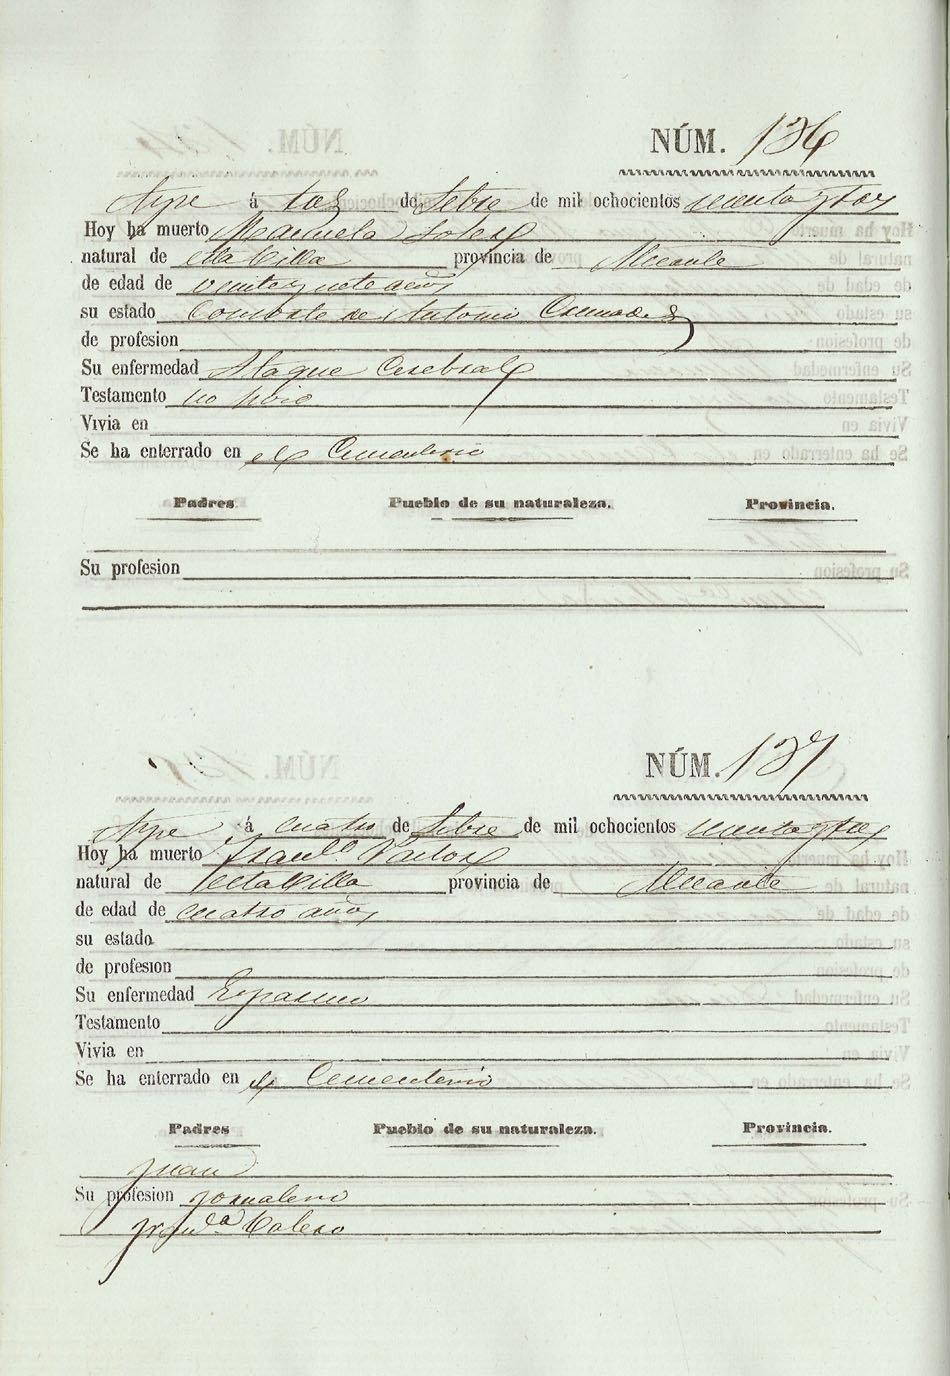 NÚM. 136
Aspe á tres de Febre de mil ochocientos sesenta y tres
Hoy ha muerto Manuela Soler
natural de esta Villa provincia de Alicante
de edad de veinte y siete años
su estado Consorte de Antonio
de profesion
Su enfermedad Ataque Cerebral
Testamento no hizo
Vivia en
Se ha enterrado en el Cementerio
Padres Pueblo de su naturaleza. Provincia.
Su profesion
NÚM. 137
Aspe á cuatro de Febre de mil ochocientos sesenta y tres
Hoy ha muerto Franco Pastor
natural de esta Villa provincia de Alicante
de edad de cuatro años
su estado
de profesion
Su enfermedad Espasmo
Testamento
Vivia en
Se ha enterrado en el Cementerio
Padres Pueblo de su naturaleza. Provincia.
Juan
Su profesion Jornalero
Calero